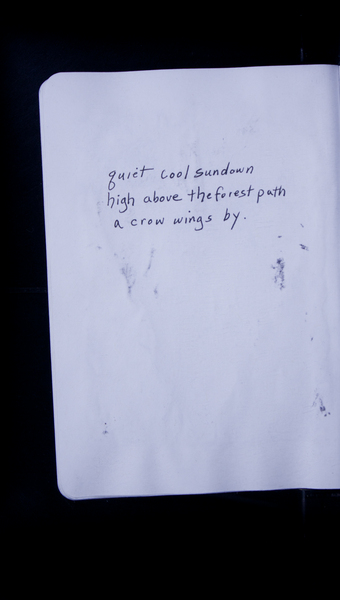 quiet cool sundown
high above the forest path
a crow wings by.